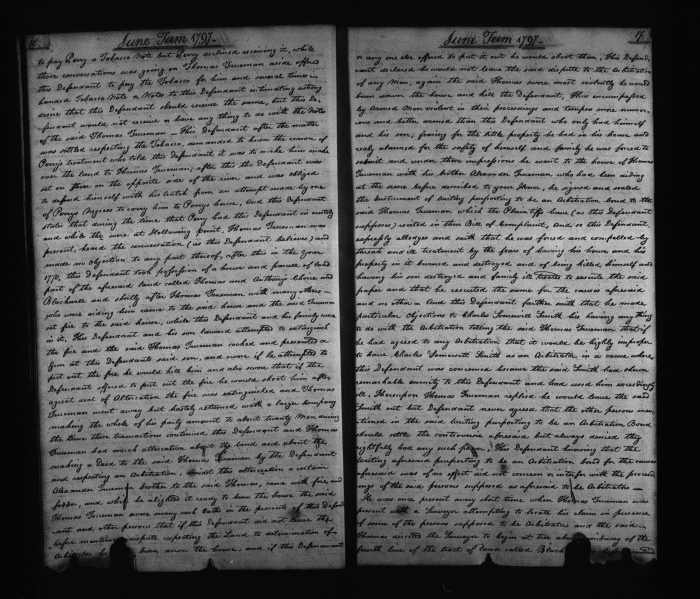 June Term 1797.
to pay Perry a Tobacco Note but Perry declined receiving it, while
those conversations was going on Thomas Trueman aside offered
this Defendant to pay the Tobacco for him and several times in
handed Tobacco Note or Notes to this Defendant intimating acting
desire that this Defendant should receive the same, but this De-
fendant would not receive or have any thing to do with the Note
of the said Thomas Trueman — This Defendant after the matter
was settled respecting the Tobacco, demanded to know the reason of
Perry's treatment who told this Defendant it was to make him make
over the land to Thomas Trueman; after this the Defendant was
set on shore on the opposite side of the river and was obliged
to defend himself with his from an attempt made by one
of Perry's Negroes to carry him to Perry's house, And this Defendant
states that during the time that Perry had this Defendant in custody
and while they were at Hallowing Point, Thomas Trueman was
present, heard the conversation (as this Defendant believes) and
made no objection to any part thereof, after this in the year
1778, this Defendant took possession of a house and parcel of land
part of the aforesaid land called Thomas and Anthony's Choice and
Blackwell and shortly after Thomas Trueman, with many others
who were aiding him came to the said house and the said Trueman
set fire to the said house, while this Defendant and his family were
in it, This Defendant and his son Edward attempted to extinguish
the fire and the said Thomas Trueman cocked and presented a
Gun at the Defendants said son, and swore if he attempted to
put out the fire he would kill him and also swore that if the
Defendant offered to put out the fire he would shoot him after
a great deal of Altercation the fire was extinguished and Thomas
Trueman went away but hastily returned with a larger Company
making the whole of his party amount to about twenty Men during
the time these transactions continued this Defendant and Thomas
Trueman had much altercation about the land and about the
making a Deed to the said Thomas Trueman by the Defendant
and respecting an arbitration, amidst this altercation a certain
Alexander Trueman brother to the said Thomas, came with fire and
fodder, and while he alighted it ready to burn the house the said
Thomas Trueman swore many rash Oaths in the presence of this Defend-
ant and other persons that if this Defendant did not leave the
before mentioned dispute respecting the Land to determination of
Arbitrators he burn down the house, and if this Defendant
June Term 1797.
7
or any one else offered to put it out he would shoot them, This Defend-
ant declared he would not leave the said dispute to the Arbitration
of any Men, again the said Thomas swore most violently he would
burn down the house and kill the Defendant, Thus encompassed
by Armed Men violent in their proceedings and temper more numer-
ous and better armed than this Defendant who only had himself
and his son; fearing for the little property he had in his house and
really alarmed for the safety of himself and family he was forced to
submit and under these impressions he went to the house of Thomas
Trueman with his brother Alexander Trueman who had been aiding
at the scene before described to your Honor, he signed and sealed
the Instrument of writing purporting to be an Arbitration bond to the
said Thomas Trueman which the Plaintiffs have (as this Defendant
supposes) recited in their Bill of Complaint, And so this Defendant
expressly alledges and saith that he was forced and compelled by
threats and ill treatment by the fear of having his house and his
property in it burned and destroyed and of being killed himself and
having his son destroyed and family ill treated to execute the said
paper and that he executed the same for the causes aforesaid
and no other — And this Defendant further saith that he made
particular Objections to Charles Somersett Smith his having any thing
to do with the Arbitration telling the said Thomas Trueman that if
he had agreed to any Arbitration that it would be highly improper
to have Charles Somersett Smith as an Arbitrator in a cause where
this Defendant was concerned because the said Smith had shewn
remarkable enmity to this Defendant and had used him exceedingly
ill, Thereupon Thomas Trueman replied he would leave the said
Smith out but Defendant never agreed that the other persons men-
tioned in the said writing purporting to be an Arbitration Bond
should settle the controversie aforesaid but always denied they
rightfully had any such power, This Defendant knowing that the
writing aforesaid purporting to be an Arbitration bond for the causes
aforesaid was of no effect did not concern or interfer with the proceed-
ings of the said persons supposed as aforesaid to be Arbitrators
He was once present a very short time when Thomas Trueman was
present with a Surveyor attempting to locate his claim in presence
of some of the persons supposed to be Arbitrators and the said
Thomas directed the Surveyor to begin at the
fourth line of the tract of land called